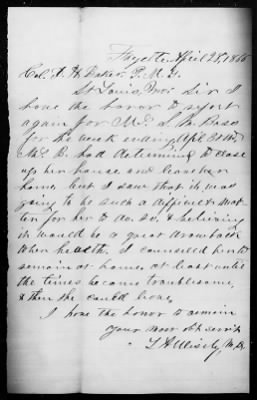 Fayette, April 28, 1865
Col. J. H. Baker, P. M. G.
St Louis, Mo; Sir I
have the honor to report
again for Mrs. S. B.
for the week ending Apl.
Mrs. B. had determined to close
up her house and leave her
home, but I saw that it was
going to be such a difficult mat-
ter for her to do so, & believing
it would be a great drawback
to her health, I counselled her to
remain at home, at least until
the times became troublesome,
& then she could leave,
I have the honor to remain
your most obt. servt.
M. D.